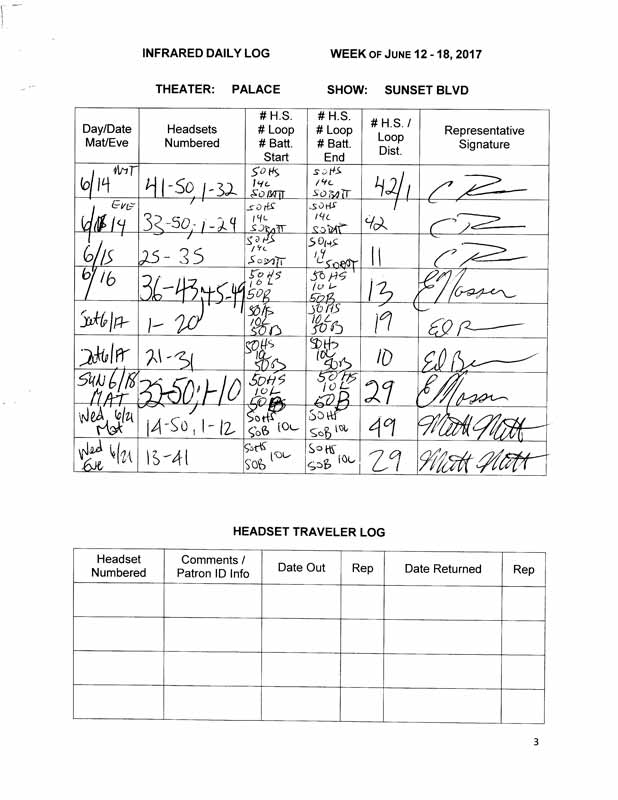 INFRARED DAILY LOG WEEK OF JUNE 12 - 18, 2017
THEATER: PALACE SHOW: SUNSET BLVD
Day/Date Mat/Eve Headsets Numbered # H.S. # Loop # Batt. Start # H.S. # Loop # Batt. End # H.S. / Loop Dist. Representative Signature
6/14 MAT 41-50, 1-32 50HS 14L 50BATT 50HS 14L 50BATT 42/1
6/14 EVE 33-50; 1-24 50HS 14L 50BATT 50HS 14L 50BATT 42
6/15 25-35 50HS 14L 50BATT 50HS 14 L 50BATT 11
6/16 36-43, 45-49 50HS 10L 50B 50HS 10L 50B 13 E Mosser
Sat 6/17 1-20 50HS 10L 50B 50HS 10L 50B 19
Sat 6/17 21-31 50HS 10L 50B 50HS 10L 50B 10
SUN 6/18 MAT 50HS 10L 50B 50HS 10L 50B 29 E Mosser
Wed 6/21 Mat 14-50, 1-12 50HS 50B 10L 50HS 50B 10L 49 Matt
Wed 6/21 Eve 13-41 50HS 50B 10L 50HS 50B 10L 29 Matt
HEADSET TRAVELER LOG
Headset Numbered Comments / Patron ID Info Date Out Rep Date Returned Rep
3